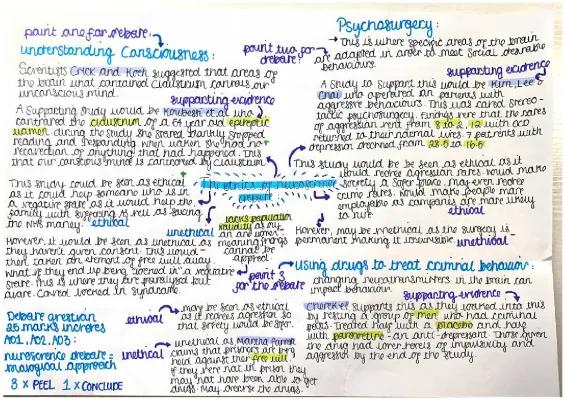 point one for debate:
understanding Consciousness:
Scientists Crick and Koch suggested that areas of
the brain that contained claustrum controls our
unconscious mind.
supporting evidence
A Supporting study would be Koubeissi et al who
contained the claustrum of a 54 year old epileptic
women. during the study she stared blankly stopped
reading and responding. when woken she had no
recollection of anything that had happened. This
that our conscious mind is contained by claustrum
This study could be seen as ethical
as it could help someone who is in
a negative state as it would help the
family with suffering as well as saving
the NHS money. ethical
However it would be seen as unethical as
they haven't given consent. This would
then taken an element of free will away
what if they end up being "locked in" a vegetative
state. this is where they are paralysed but
aware. called locked in syndrome.
Debate question
25 marks includes
AO1, AO2, AO3:
neuroscience debate =
biological approach
3 x PEEL 1 x CONCLUDE
point two for
debate:
the ethics of neuroscience
debate
unethical
lacks population
validity as only
on one women
meaning findings
cannot be
applied
point 3
for the debate
Psychosurgery:
→ This is where specific areas of the brain
are adapted in order to meet social desirable
behaviours.
supporting evidence
A Study to support this would be Kim, Lee &
Choi who operated on patients with
aggressive behaviours. This was called stereo-
tactic psychosurgery. findings were that the rates
of aggression went from 8 to 2, 12 work and
returned to their normal lives. 7 patients with
depression dropped from 23.5 to 16.5
This study would be seen as ethical as it
would reduce aggression rates would make
society a safer place. may even reduce
crime rates. would make people more
employable as companies are more likely
to hire. ethical
However, may be unethical as the surgery is
permanent making it irreversible unethical
using drugs to treat criminal behaviour:
changing neurotransmitters in the brain can
impact behaviour.
supporting evidence
Cherek et supports this as they worked into this
by testing a group of men who had criminal
pasts. Treated half with a placebo and half
with paroxetine - an anti-depressant. Those given
the drug had lower levels of impulsivity and
aggression by the end of the study.
ethical
may be seen as ethical
as it reduces aggression so
that society would be safer.
unethical
unethical as Martha Farah
claims that prisoners are being
held against their free will.
if they were not in prison they
may not have been able to get
drugs. may overuse the drugs.